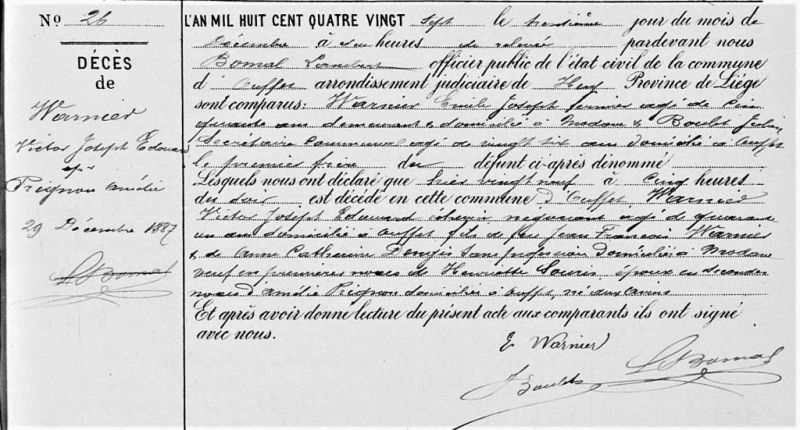 No 26
DÉCÈS
de
Warnier
Victor Joseph Edouard
Preignon Amélie
29 Décembre 1887
L Bomal
L'AN MIL HUIT CENT QUATRE VINGT sept le trentième jour du mois de
Décembre à heures de relevée pardevant nous
Bomal Lambert officier public de l'état civil de la commune
d Ouffet arrondissement judiciaire de Huy Province de Liége
sont comparus: Warnier Emile Joseph agé de cin
quante ans demeurant & domicilié à Modave & Boulet
Secrétaire communal agé de vingt six ans domicilié à Ouffet
le premier frère du défunt ci-après dénommé
Lesquels nous ont déclaré que hier vingt neuf à cinq heures
du soir est décédé en cette commune d'Ouffet Warnier
Victor Joseph Edouard négociant agé de quarante
un ans domicilié à Ouffet fils de feu Jean François Warnier
& de Anne Catherine sans profession domiciliée à Modave
veuf en premières noces de Henriette époux en secondes
noces d'Amélie Preignon domiciliée à Ouffet,
Et après avoir donné lecture du présent acte aux comparants ils ont signé
avec nous.
E Warnier
J Boulet
L Bomal